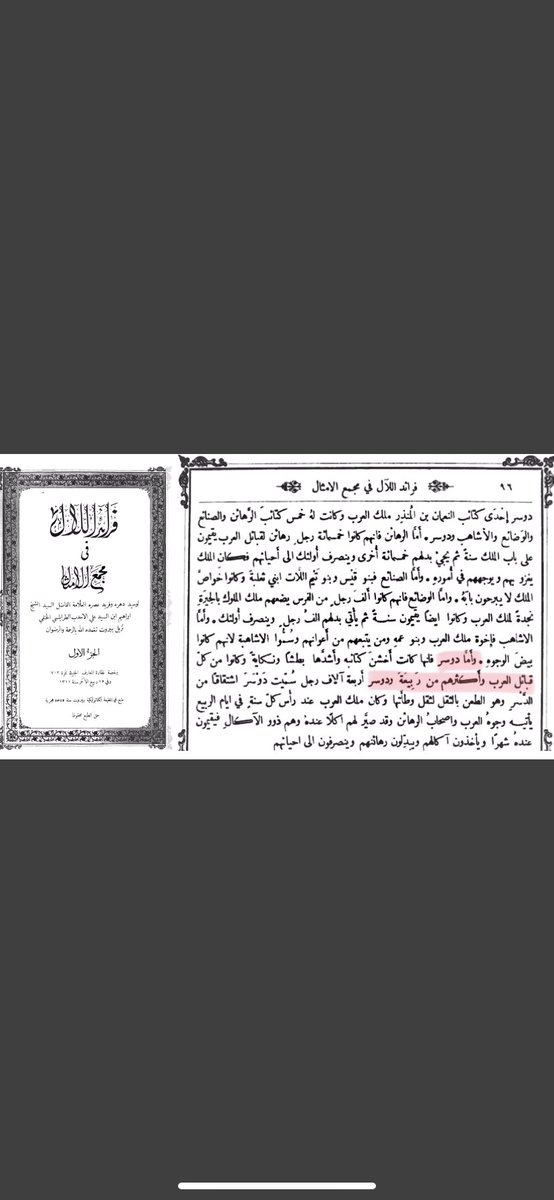 فرائد اللآل
في
مجمع الأمثال
الجزء الأول
٩٦
فرائد اللآل في مجمع الامثال
دوسر إحدى كتائب النعمان بن المنذر ملك العرب وكانت لهُ خمس كتائب الرهائن والصنائع
والوضائع والأشاهب ودوسر. أمَّا الرهائن فانهم كانوا خمسمائة رجل رهائن لقبائل العرب يقيمون
على باب الملك سنة ثم يجيء بدلهم خمسمائة أخرى وينصرف أولئك الى أحيائهم فكان الملك
يغزو بهم ويوجههم في أمورهِ. وأمَّا الصنائع فبنو قيس وبنو تيم اللّات ابني ثعلبة وكانوا خواصَّ
الملك لا يبرحون بابهُ. وأمَّا الوضائع فانهم كانوا ألف رجل من الفرس يضعهم ملك الملوك بالحيرة
نجدة لملك العرب وكانوا ايضًا يقيمون سنة ثم يأتي بدلهم الف رجل وينصرف أولئك. وأمَّا
الاشاهب فإخوة ملك العرب وبنو عمهِ ومن يتبعهم من أعوانهم وسُمُّوا الاشاهبة لانهم كانوا
بيض الوجوه. وأمَّا دوسر فانها كانت أخشن كتائبه وأشدَّها بطشًا ونكاية وكانوا من كلّ
قبائل العرب وأكثرهم من رَبيعَة ودوسر أربعة آلاف رجل سُمِّيت دَوسَر اشتقاقًا من
الدَّسْر وهو الطعن بالثقل لثقل وطأتها وكان ملك العرب عند رأس كلّ سنة في ايام الربيع
يأتيهِ وجوهُ العرب واصحابُ الرهائن وقد صيَّر لهم اكلًا عندهُ وهم ذوو الآكال فيقيمون
عندهُ شهرًا ويأخذون آكالهم ويبدّلون رهائنهم وينصرفون الى احيائهم